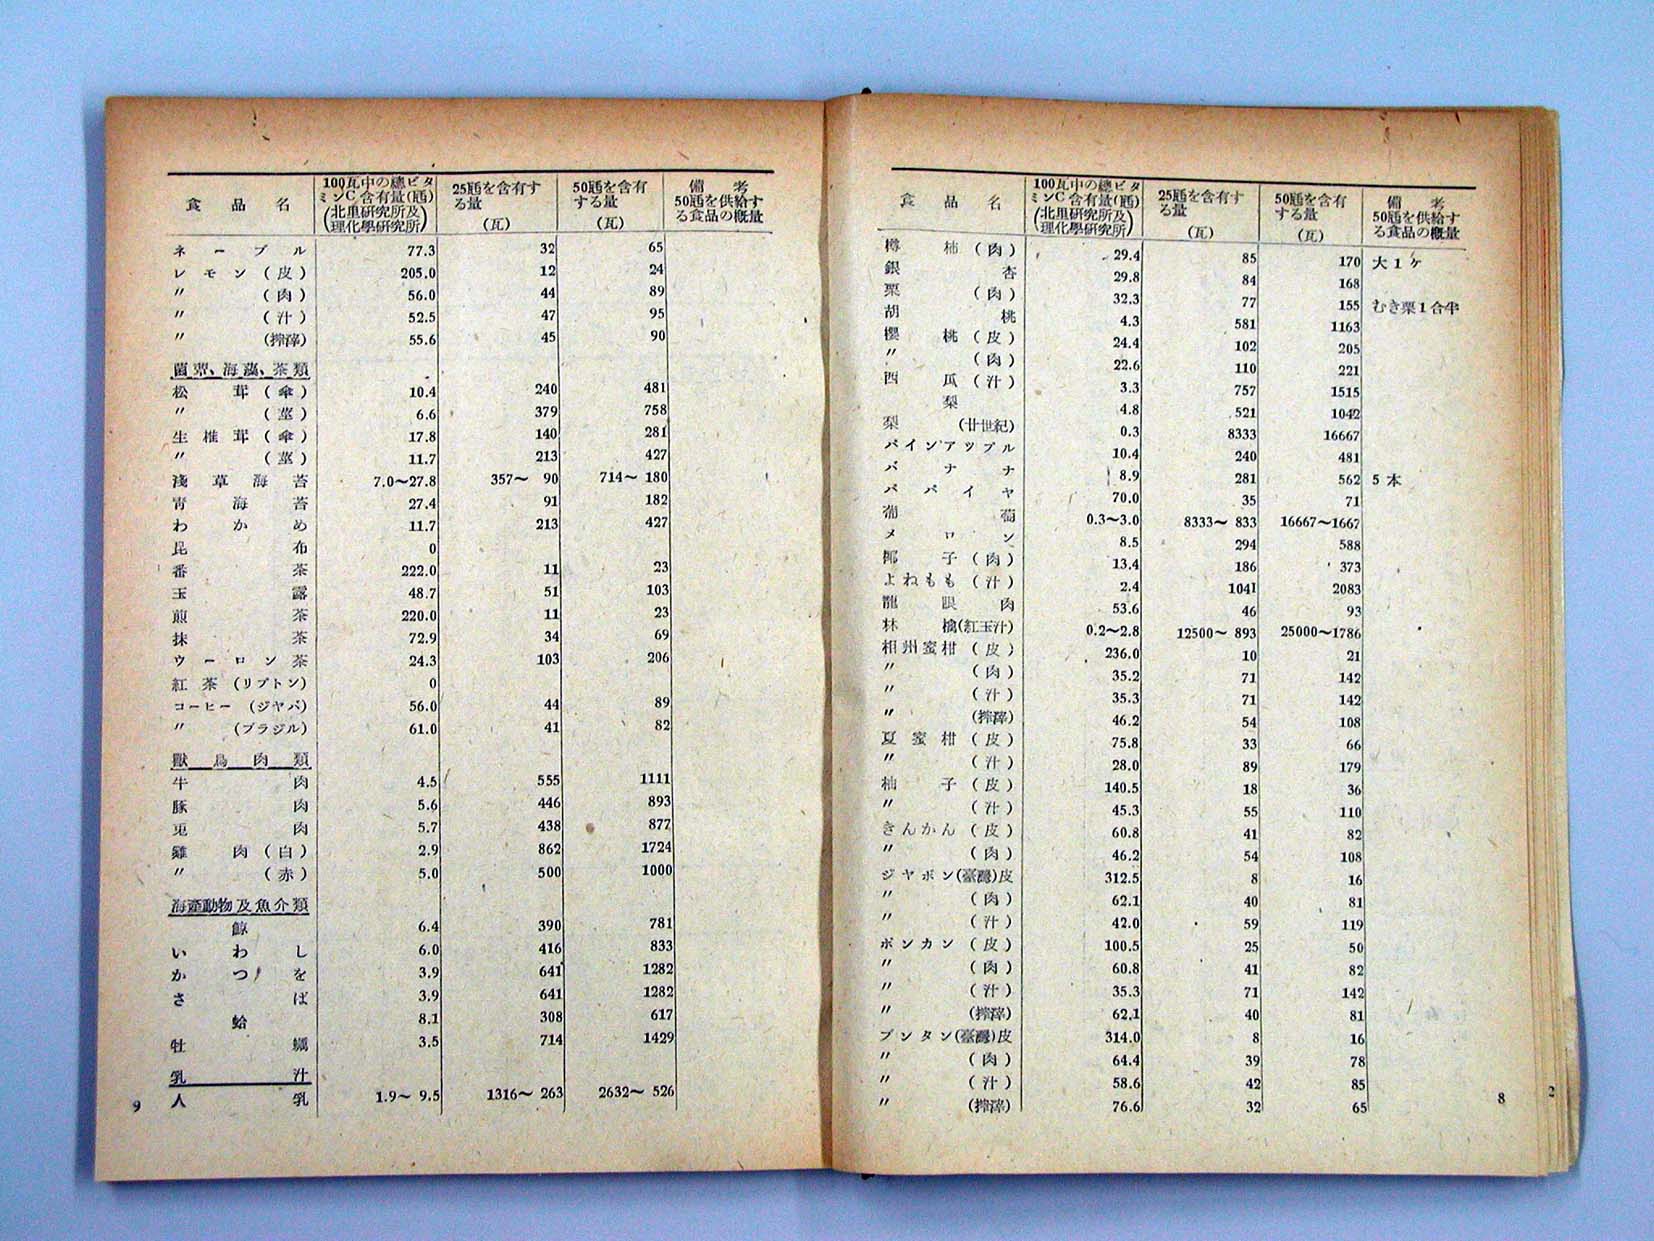 食品名 100瓦中の總ビタミンC含有量(瓱)(北里研究所及理化學研究所) 25瓱を含有する量(瓦) 50瓱を含有する量(瓦) 備考 50瓱を供給する食品の概量
樽柿(肉) 29.4 85 170 大1ケ
銀杏 29.8 84 168
栗(肉) 32.3 77 155 むき栗1合半
胡桃 4.3 581 1163
櫻桃(皮) 24.4 102 205
〃(肉) 22.6 110 221
西瓜(汁) 3.3 757 1515
梨 4.8 521 1042
梨(廿世紀) 0.3 8333 16667
パインアツプル 10.4 240 481
バナナ 8.9 281 562 5本
パパイヤ 70.0 35 71
葡萄 0.3〜3.0 8333〜833 16667〜1667
メロン 8.5 294 588
椰子(肉) 13.4 186 373
よねもも(汁) 2.4 1041 2083
龍眼肉 53.6 46 93
林檎(紅玉汁) 0.2〜2.8 12500〜893 25000〜1786
相州蜜柑(皮) 236.0 10 21
〃(肉) 35.2 71 142
〃(汁) 35.3 71 142
〃(搾滓) 46.2 54 108
夏蜜柑(皮) 75.8 33 66
〃(汁) 28.0 89 179
柚子(皮) 140.5 18 36
〃(汁) 45.3 55 110
きんかん(皮) 60.8 41 82
〃(肉) 46.2 54 108
ジヤボン(臺灣)皮 312.5 8 16
〃(肉) 62.1 40 81
〃(汁) 42.0 59 119
ポンカン(皮) 100.5 25 50
〃(肉) 60.8 41 82
〃(汁) 35.3 71 142
〃(搾滓) 62.1 40 81
ブンタン(臺灣)皮 314.0 8 16
〃(肉) 64.4 39 78
〃(汁) 58.6 42 85
〃(搾滓) 76.6 32 65
8
2
食品名 100瓦中の總ビタミンC含有量(瓱)(北里研究所及理化學研究所) 25瓱を含有する量(瓦) 50瓱を含有する量(瓦) 備考 50瓱を供給する食品の概量
ネーブル 77.3 32 65
レモン(皮) 205.0 12 24
〃(肉) 56.0 44 89
〃(汁) 52.5 47 95
〃(搾滓) 55.6 45 90
菌蕈、海藻、茶類
松茸(傘) 10.4 240 481
〃(莖) 6.6 379 758
生椎茸(傘) 17.8 140 281
〃(莖) 11.7 213 427
淺草海苔 7.0〜27.8 357〜90 714〜180
靑海苔 27.4 91 182
わかめ 11.7 213 427
昆布 0
番茶 222.0 11 23
玉露 48.7 51 103
煎茶 220.0 11 23
抹茶 72.9 34 69
ウーロン茶 24.3 103 206
紅茶(リプトン) 0
コーヒー(ジヤバ) 56.0 44 89
〃(ブラジル) 61.0 41 82
獸鳥肉類
牛肉 4.5 555 1111
豚肉 5.6 446 893
兎肉 5.7 438 877
雞肉(白) 2.9 862 1724
〃(赤) 5.0 500 1000
海產動物及魚介類
鯨 6.4 390 781
いわし 6.0 416 833
かつを 3.9 641 1282
さば 3.9 641 1282
蛤 8.1 308 617
牡蠣 3.5 714 1429
乳汁
人乳 1.9〜9.5 1316〜263 2632〜526
9